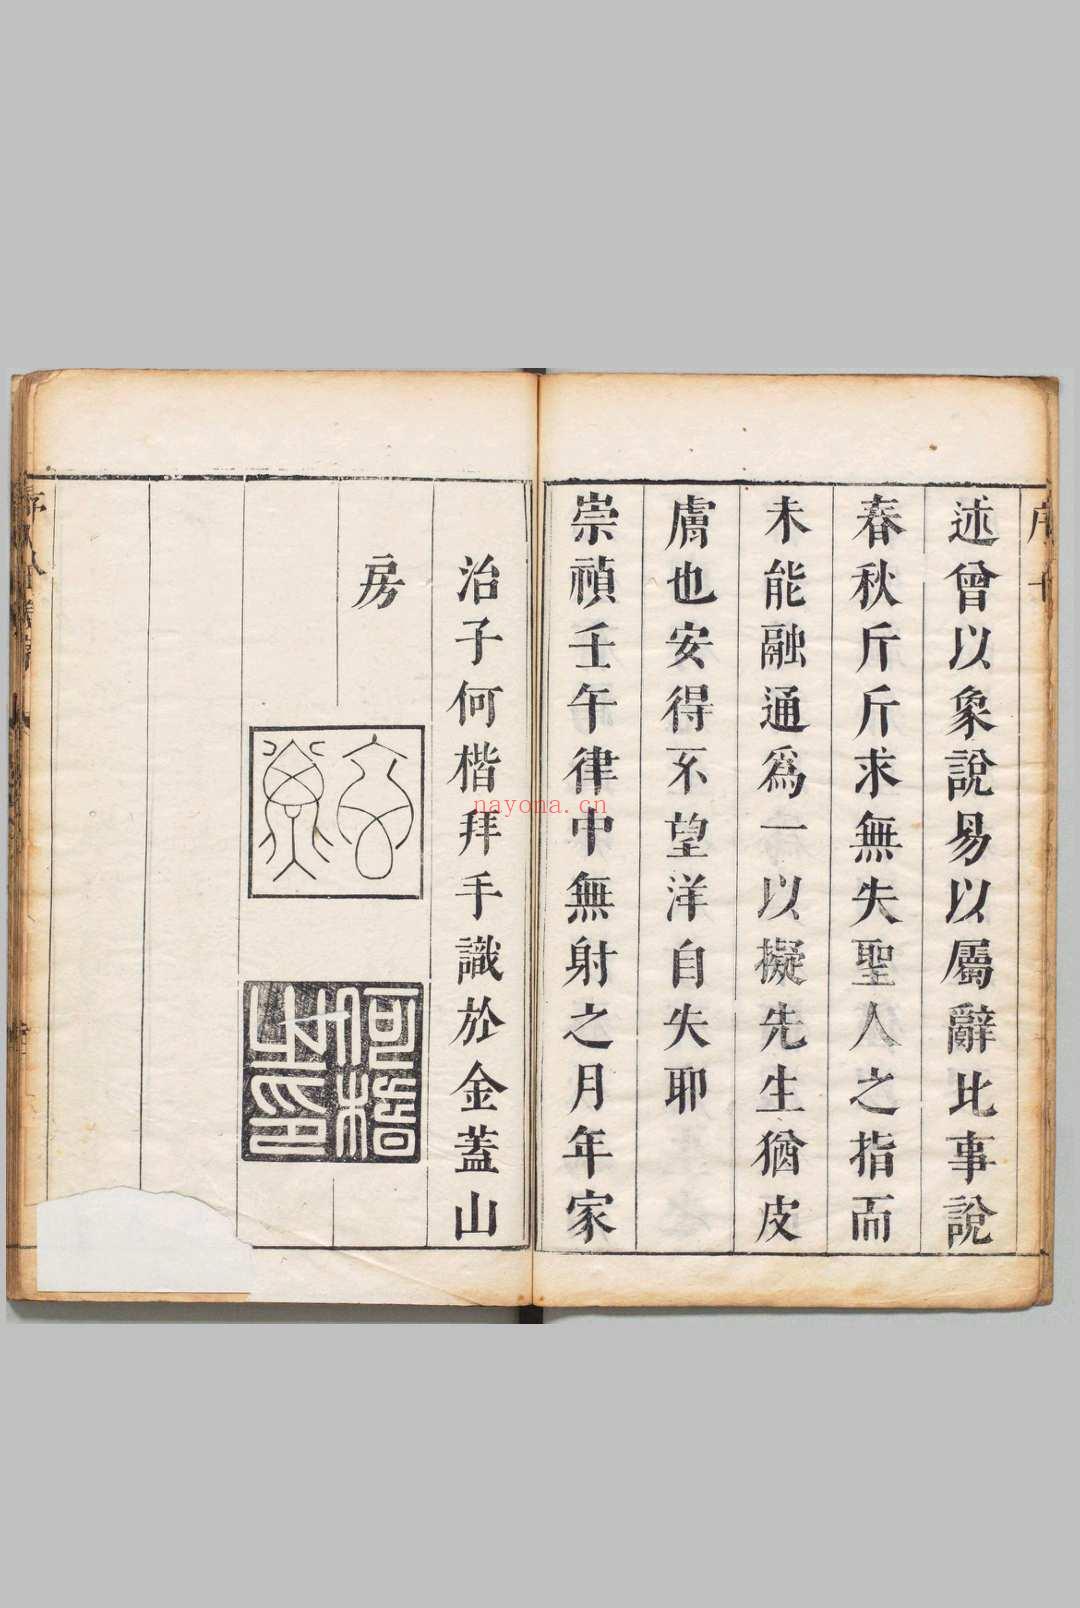 述曾以象說易以屬辭比事說
春秋斤斤求無失聖人之指而
未能融通爲一以擬先生猶皮
膚也安得不望洋自失耶
崇禎壬午律中無射之月年家
治子何楷拜手識於金蓋山
房
何楷
之印
nayona.cn